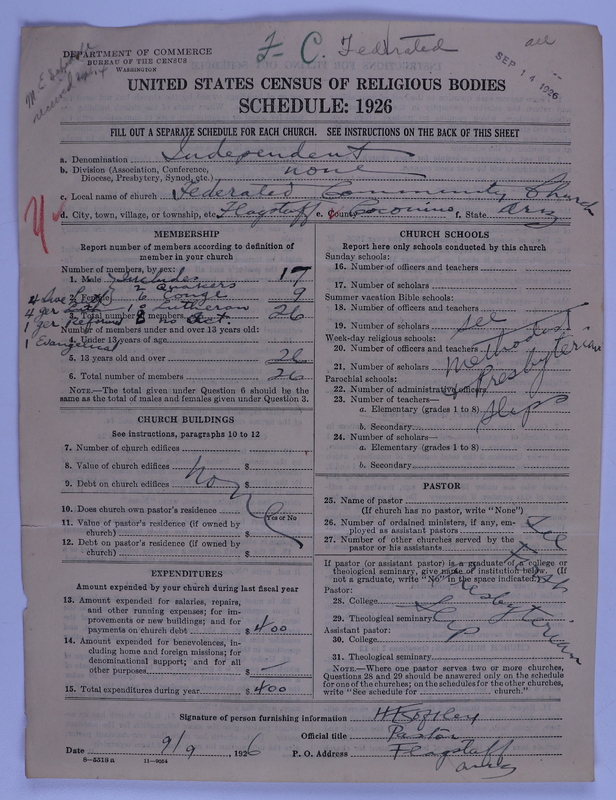 F. C. Federated
all
SEP 14 1926
M. E.
DEPARTMENT OF COMMERCE
BUREAU OF THE CENSUS
WASHINGTON
UNITED STATES CENSUS OF RELIGIOUS BODIES
SCHEDULE: 1926
FILL OUT A SEPARATE SCHEDULE FOR EACH CHURCH. SEE INSTRUCTIONS ON THE BACK OF THIS SHEET
a. Denomination Independent
b. Division (Association, Conference, Diocese, Presbytery, Synod, etc.) none
c. Local name of church Federated Community Church
d. City, town, village, or township, etc. Flagstaff e. County Coconino f. State Ariz
MEMBERSHIP
Report number of members according to definition of member in your church
Number of members, by sex:
1. Male 17
2. Female 9
3. Total number of members 26
Includes
2 Quakers
6 Congl
1 Lutheran
8 no
4
4
1 Ger Reformed
1 Evangelical
Number of members under and over 13 years old:
4. Under 13 years of age
5. 13 years old and over 26
6. Total number of members 26
NOTE.—The total given under Question 6 should be the same as the total of males and females given under Question 3.
CHURCH BUILDINGS
See instructions, paragraphs 10 to 12
7. Number of church edifices
8. Value of church edifices $
9. Debt on church edifices $
none
10. Does church own pastor's residence
Yes or No
11. Value of pastor's residence (if owned by church) $
12. Debt on pastor's residence (if owned by church) $
EXPENDITURES
Amount expended by your church during last fiscal year
13. Amount expended for salaries, repairs, and other running expenses; for improvements or new buildings; and for payments on church debt $ 400
14. Amount expended for benevolences, including home and foreign missions; for denominational support; and for all other purposes $ —
15. Total expenditures during year $ 400
CHURCH SCHOOLS
Report here only schools conducted by this church
Sunday schools:
16. Number of officers and teachers
17. Number of scholars
Summer vacation Bible schools:
18. Number of officers and teachers
19. Number of scholars
Week-day religious schools:
20. Number of officers and teachers
21. Number of scholars
Parochial schools:
22. Number of administrative officers
23. Number of teachers—
a. Elementary (grades 1 to 8)
b. Secondary
24. Number of scholars—
a. Elementary (grades 1 to 8)
b. Secondary
See
Methodist
& Presbyterian
Slips
PASTOR
25. Name of pastor
(If church has no pastor, write "None")
26. Number of ordained ministers, if any, employed as assistant pastors
27. Number of other churches served by the pastor or his assistants
If pastor (or assistant pastor) is a graduate of a college or theological seminary, give name of institution below. (If not a graduate, write "No" in the space indicated.)
Pastor:
28. College
29. Theological seminary
Assistant pastor:
30. College
31. Theological seminary
See
Presbyterian
Slip
NOTE.—Where one pastor serves two or more churches, Questions 28 and 29 should be answered only on the schedule for one of the churches; on the schedules for the other churches, write "See schedule for church."
Signature of person furnishing information
Official title Pastor
Date 9/9 1926 P. O. Address Flagstaff
Ariz
8—5519 a 11—9054